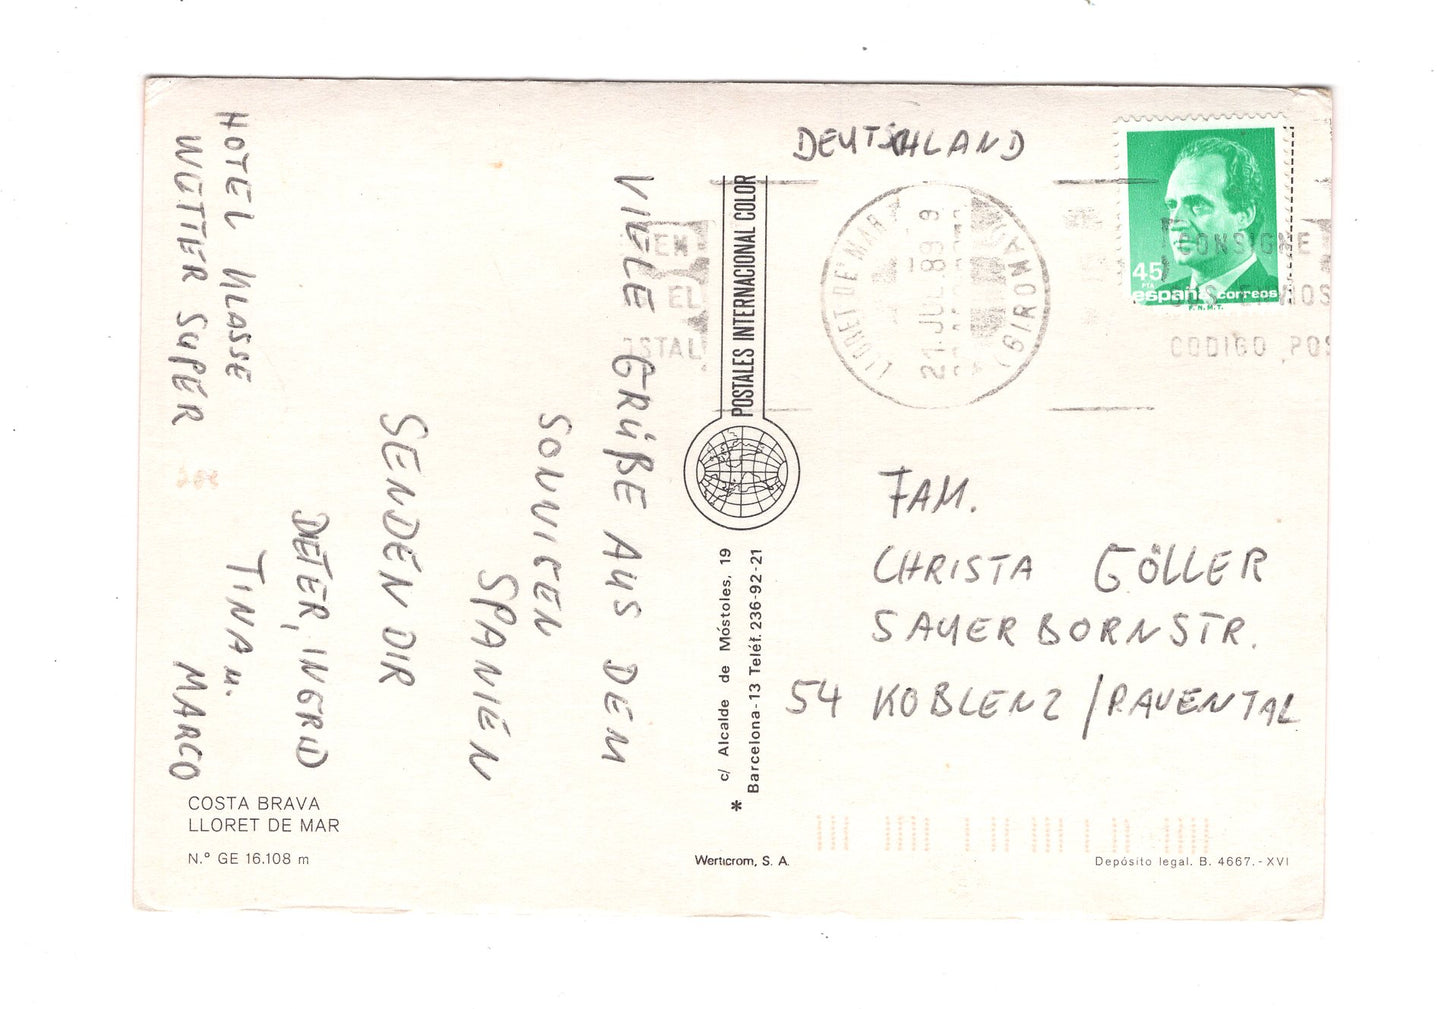 DEUTSCHLAND
VIELE GRÜßE AUS DEM
SONNIGEN
SPANIEN
SENDEN DIR
DIETER, INGRID
TINA u.
MARCO
HOTEL KLASSE
WETTER SUPER
FAM.
CHRISTA GÖLLER
SAUERBORNSTR.
54 KOBLENZ / RAVENTAL
POSTALES INTERNACIONAL COLOR
c/ Alcalde de Móstoles, 19
Barcelona-13 Teléf. 236-92-21
*
COSTA BRAVA
LLORET DE MAR
N.º GE 16.108 m
Werticrom, S. A.
Depósito legal. B. 4667.-XVI
45
PTA
españa correos
F.N.M.T.
LLORET DE MAR
21 JUL 89
(GIRONA)
CONSIGNE
CODIGO POS
EN
EL
OSTAL